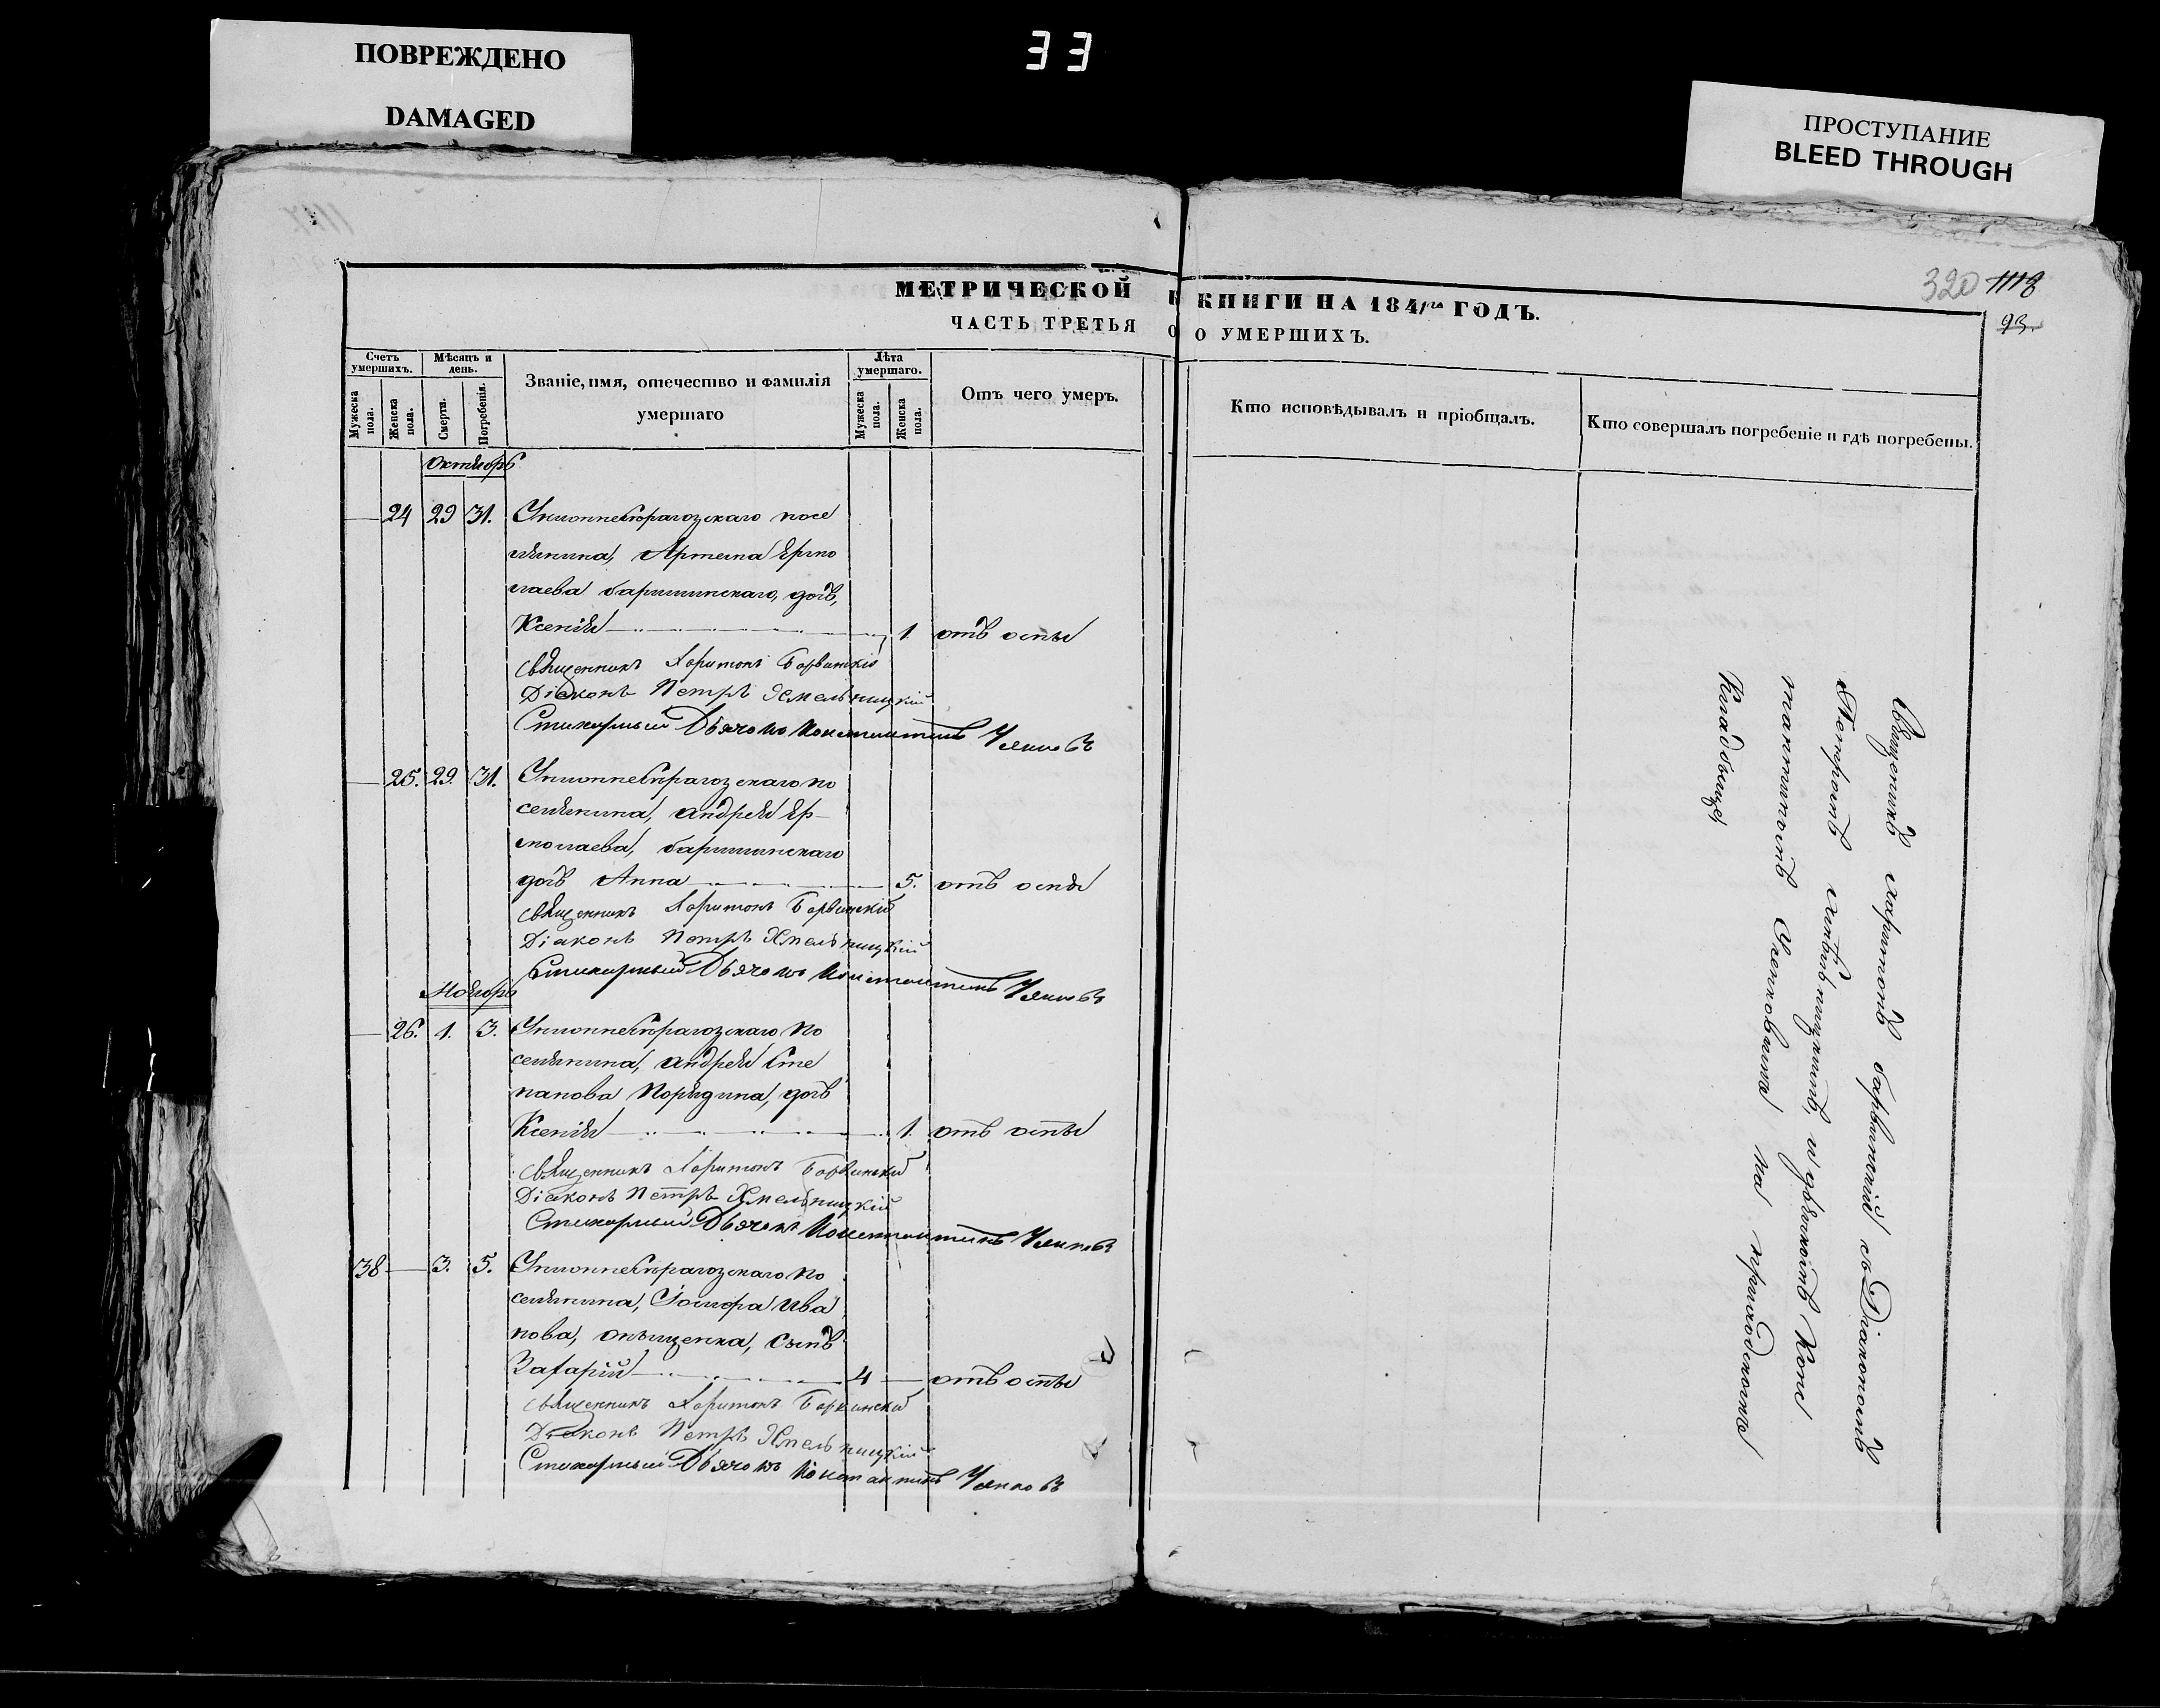 ПОВРЕЖДЕНО
DAMAGED
33
ПРОСТУПАНИЕ
BLEED THROUGH
320 1118
93.
МЕТРИЧЕСКОЙ КНИГИ НА 1841го ГОДЪ.
ЧАСТЬ ТРЕТЬЯ О УМЕРШИХЪ.
Счетъ умершихъ.
Мужеска пола.
Женска пола.
Мѣсяцъ и день.
Смерти.
Погребенія.
Званіе, имя, отечество и фамилія
умершаго
Лѣта умершаго.
Мужеска пола.
Женска пола.
Отъ чего умеръ.
Кто исповѣдывалъ и пріобщалъ.
Кто совершалъ погребеніе и гдѣ погребены.
октября
24 29 31. посе
лянина, Артема Ермо
лаева баришинскаго, дочь,
Ксенія 1. отъ оспы
священникъ Харитонъ Борвинскій
Діаконъ Петръ Хмельницкій
Стихарный Дьячокъ Константинъ
25. 29. 31. по
селянина, андрея Ер-
молаева, баришинскаго
дочь Анна 5. отъ оспы
священникъ Харитонъ Борвинскій
Діаконъ Петръ Хмельницкій
Стихарный Дьячокъ Константинъ
Ноября
26. 1. 3. по
селянина, андрея Сте
панова дочь
Ксенія 1. отъ оспы
священникъ Харитонъ Борвинскій
Діаконъ Петръ Хмельницкій
Стихарный Дьячокъ Константинъ
38 3. 5. по
селянина, Ива
нова, сынъ
Захарій 4 отъ оспы
священникъ Харитонъ Борвинскій
Діаконъ Петръ Хмельницкій
Стихарный Дьячокъ Константинъ
Священникъ харитонъ борвинскій съ Діакономъ
Петромъ хмѣльницкимъ, и дьячкомъ Конс
тантиномъ на приходскомъ
Кладбищѣ